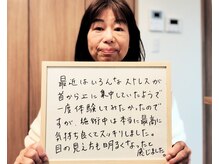 最近はいろんなストレスが
首から上に集中していたようで
一度体験してみたかったので
すが、施術中は本当に最高に
気持ち良くてスッキリしました。
目の見え方も明るくなったと
感じました。